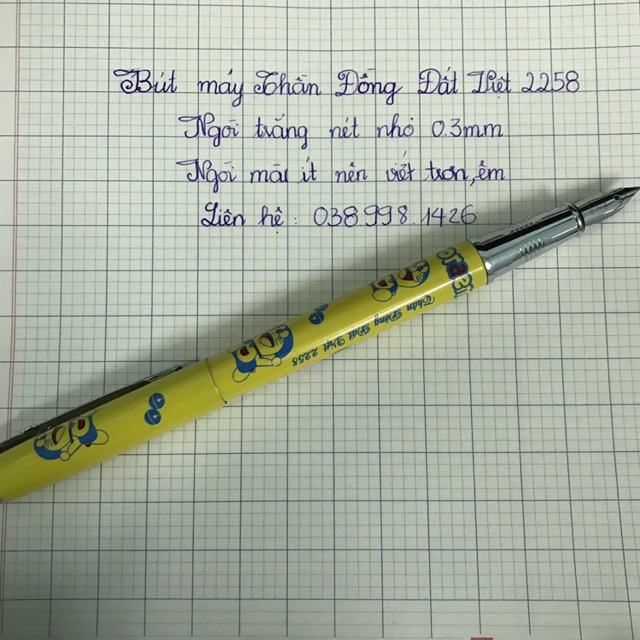 Bút máy Thần Đồng Đất Việt 2258
Ngòi trắng nét nhỏ 0.3mm
Ngòi mài ít nên viết trơn, êm
Liên hệ: 038.998.1426
Thần Đồng Đất Việt 2258